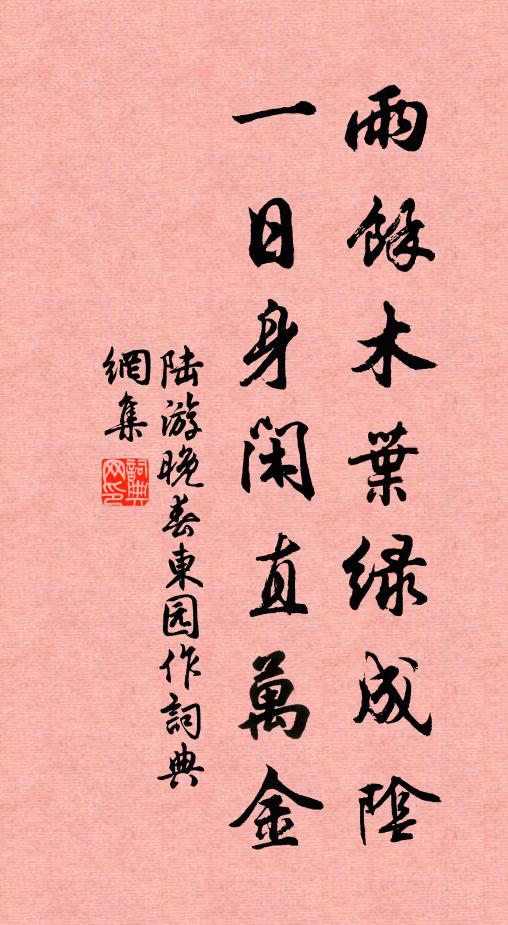 雨餘木葉緑成陰
一日身闲直萬金
陆游晚春東园作詞典
網集
詞典網印